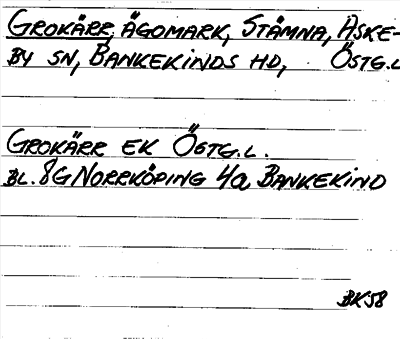 GROKÄRR, ÄGOMARK, STÄMNA, ASKE-
BY SN, BANKEKINDS HD, ÖSTG.L
GROKÄRR EK ÖSTG.L.
BL. 8G NORRKÖPING 4a, BANKEKIND
BK58